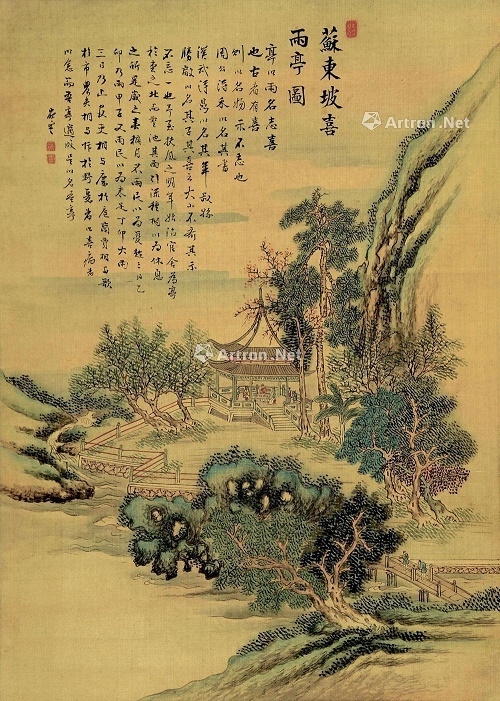 蘇東坡喜
雨亭圖
亭以雨名志喜
也古者有喜
則以名物示不忘也
周公得禾以名其書
漢武得鼎以名其年叔孫
勝敵以名其子其喜之大小不齊其示
不忘一也予至扶風之明年始治官舍為亭
於堂之北而鑿池其南引流種樹以為休息
之所是歲之春彌月不雨民以為憂越三月乙
卯乃雨甲子又雨民以為未足丁卯大雨
三日乃止官吏相與慶於庭商賈相與歌
於市農夫相與忭於野憂者以喜病者
以愈而吾亭適成是以名吾亭
Artron.Net
Artron.Net
Artron.Net
Artron.Net
Artron.Net